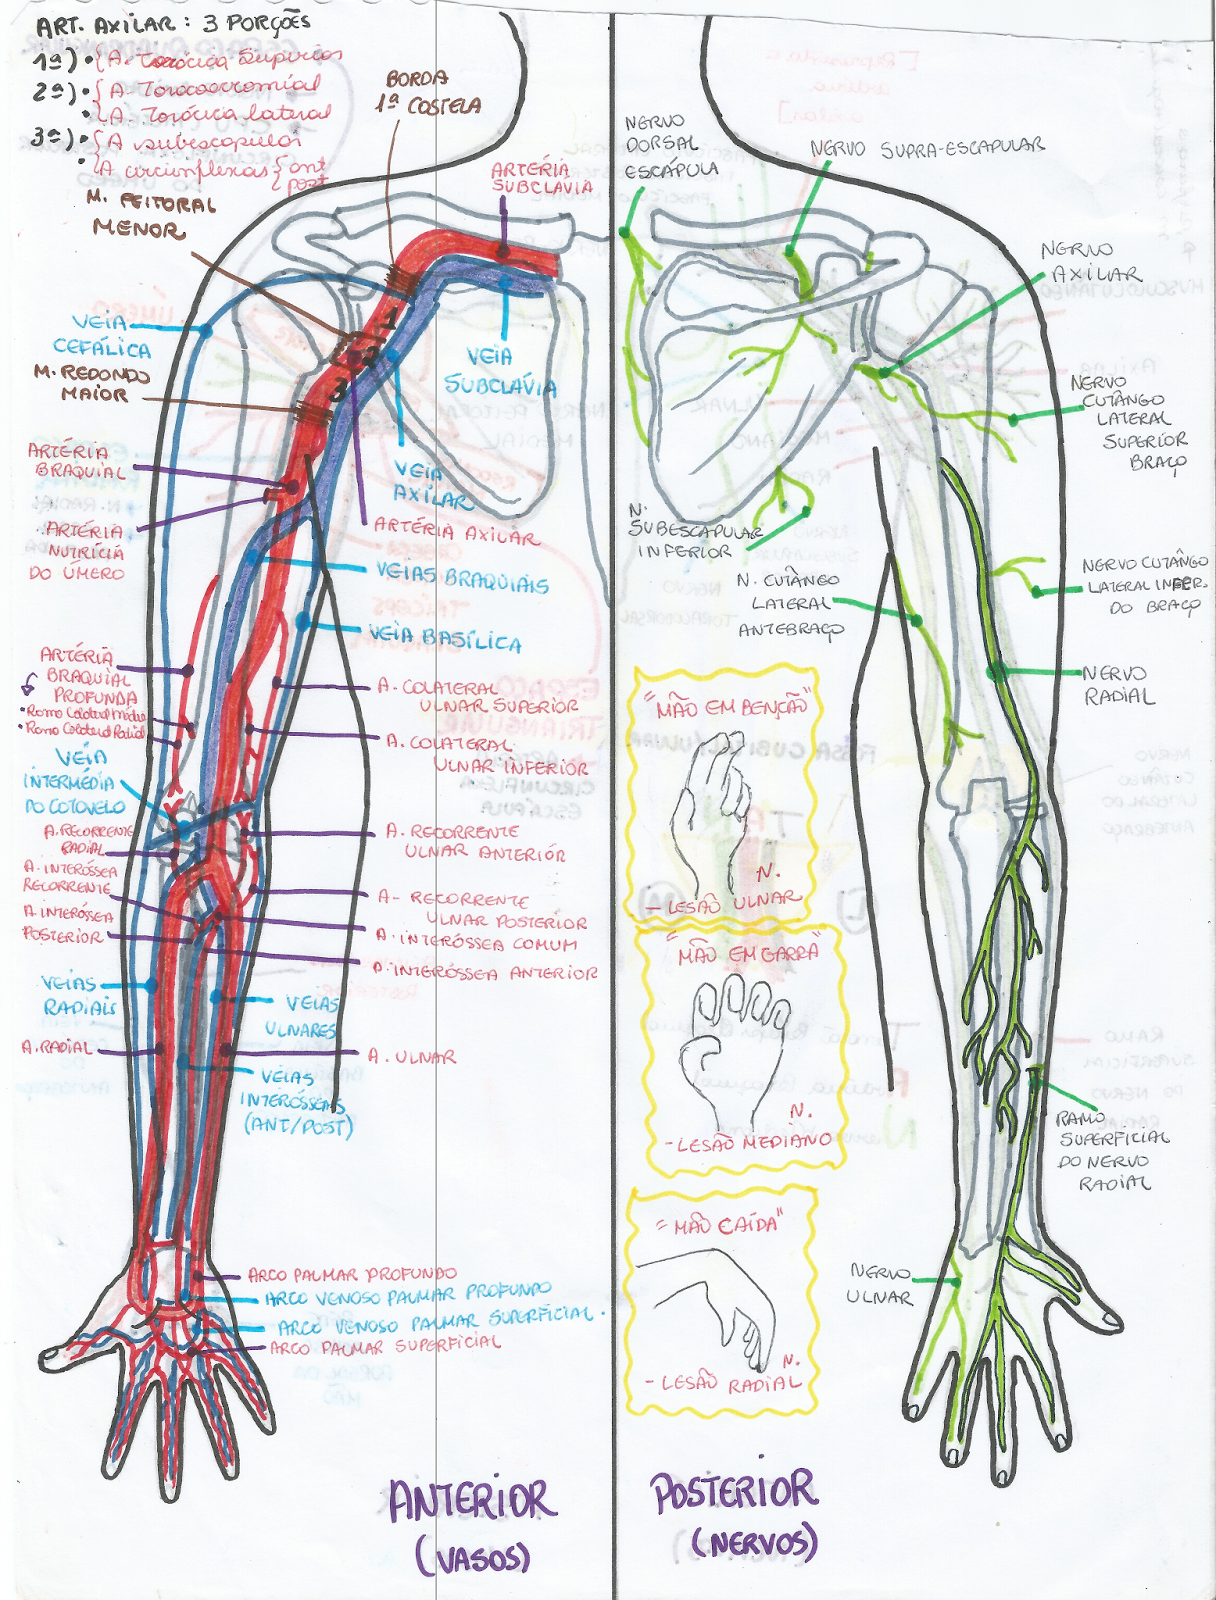 ART. AXILAR: 3 PORÇÕES
1ª) • { A. Torácica Superior
2ª) • { A. Toracoacromial
• A. Torácica lateral
3ª) • { A subescapular
• A circunflexas { ant
post
M. PEITORAL
MENOR
BORDA
1ª COSTELA
ARTÉRIA
SUBCLAVIA
VEIA
CEFÁLICA
M. REDONDO
MAIOR
1
2
3
VEIA
SUBCLÁVIA
ARTÉRIA
BRAQUIAL
VEIA
AXILAR
ARTÉRIA AXILAR
ARTÉRIA
NUTRÍCIA
DO ÚMERO
VEIAS BRAQUIAIS
VEIA BASÍLICA
ARTÉRIA
BRAQUIAL
PROFUNDA
• Ramo Colateral Médio
• Ramo Colateral Radial
A. COLATERAL
ULNAR SUPERIOR
A. COLATERAL
ULNAR INFERIOR
VEIA
INTERMÉDIA
DO COTOVELO
A. RECORRENTE
RADIAL
A. RECORRENTE
ULNAR ANTERIOR
A. INTERÓSSEA
RECORRENTE
A- RECORRENTE
ULNAR POSTERIOR
A. INTERÓSSEA
POSTERIOR
A. INTERÓSSEA COMUM
A. INTERÓSSEA ANTERIOR
VEIAS
RADIAIS
VEIAS
ULNARES
A. RADIAL
A. ULNAR
VEIAS
INTERÓSSEAS
(ANT/POST)
ARCO PALMAR PROFUNDO
ARCO VENOSO PALMAR PROFUNDO
ARCO VENOSO PALMAR SUPERFICIAL.
ARCO PALMAR SUPERFICIAL
ANTERIOR
(VASOS)
NERVO
DORSAL
ESCÁPULA
NERVO SUPRA-ESCAPULAR
NERVO
AXILAR
NERVO
CUTÂNGO
LATERAL
SUPERIOR
BRAÇO
N.
SUBESCAPULAR
INFERIOR
N. CUTÂNGO
LATERAL
ANTEBRAÇO
NERVO CUTÂNGO
LATERAL INFER.
DO BRAÇO
NERVO
RADIAL
"MÃO EM BENÇÃO"
N.
- LESÃO ULNAR
"MÃO EM GARRA"
N.
- LESÃO MEDIANO
"MÃO CAÍDA"
N.
- LESÃO RADIAL
RAMO
SUPERFICIAL
DO NERVO
RADIAL
NERVO
ULNAR
POSTERIOR
(NERVOS)